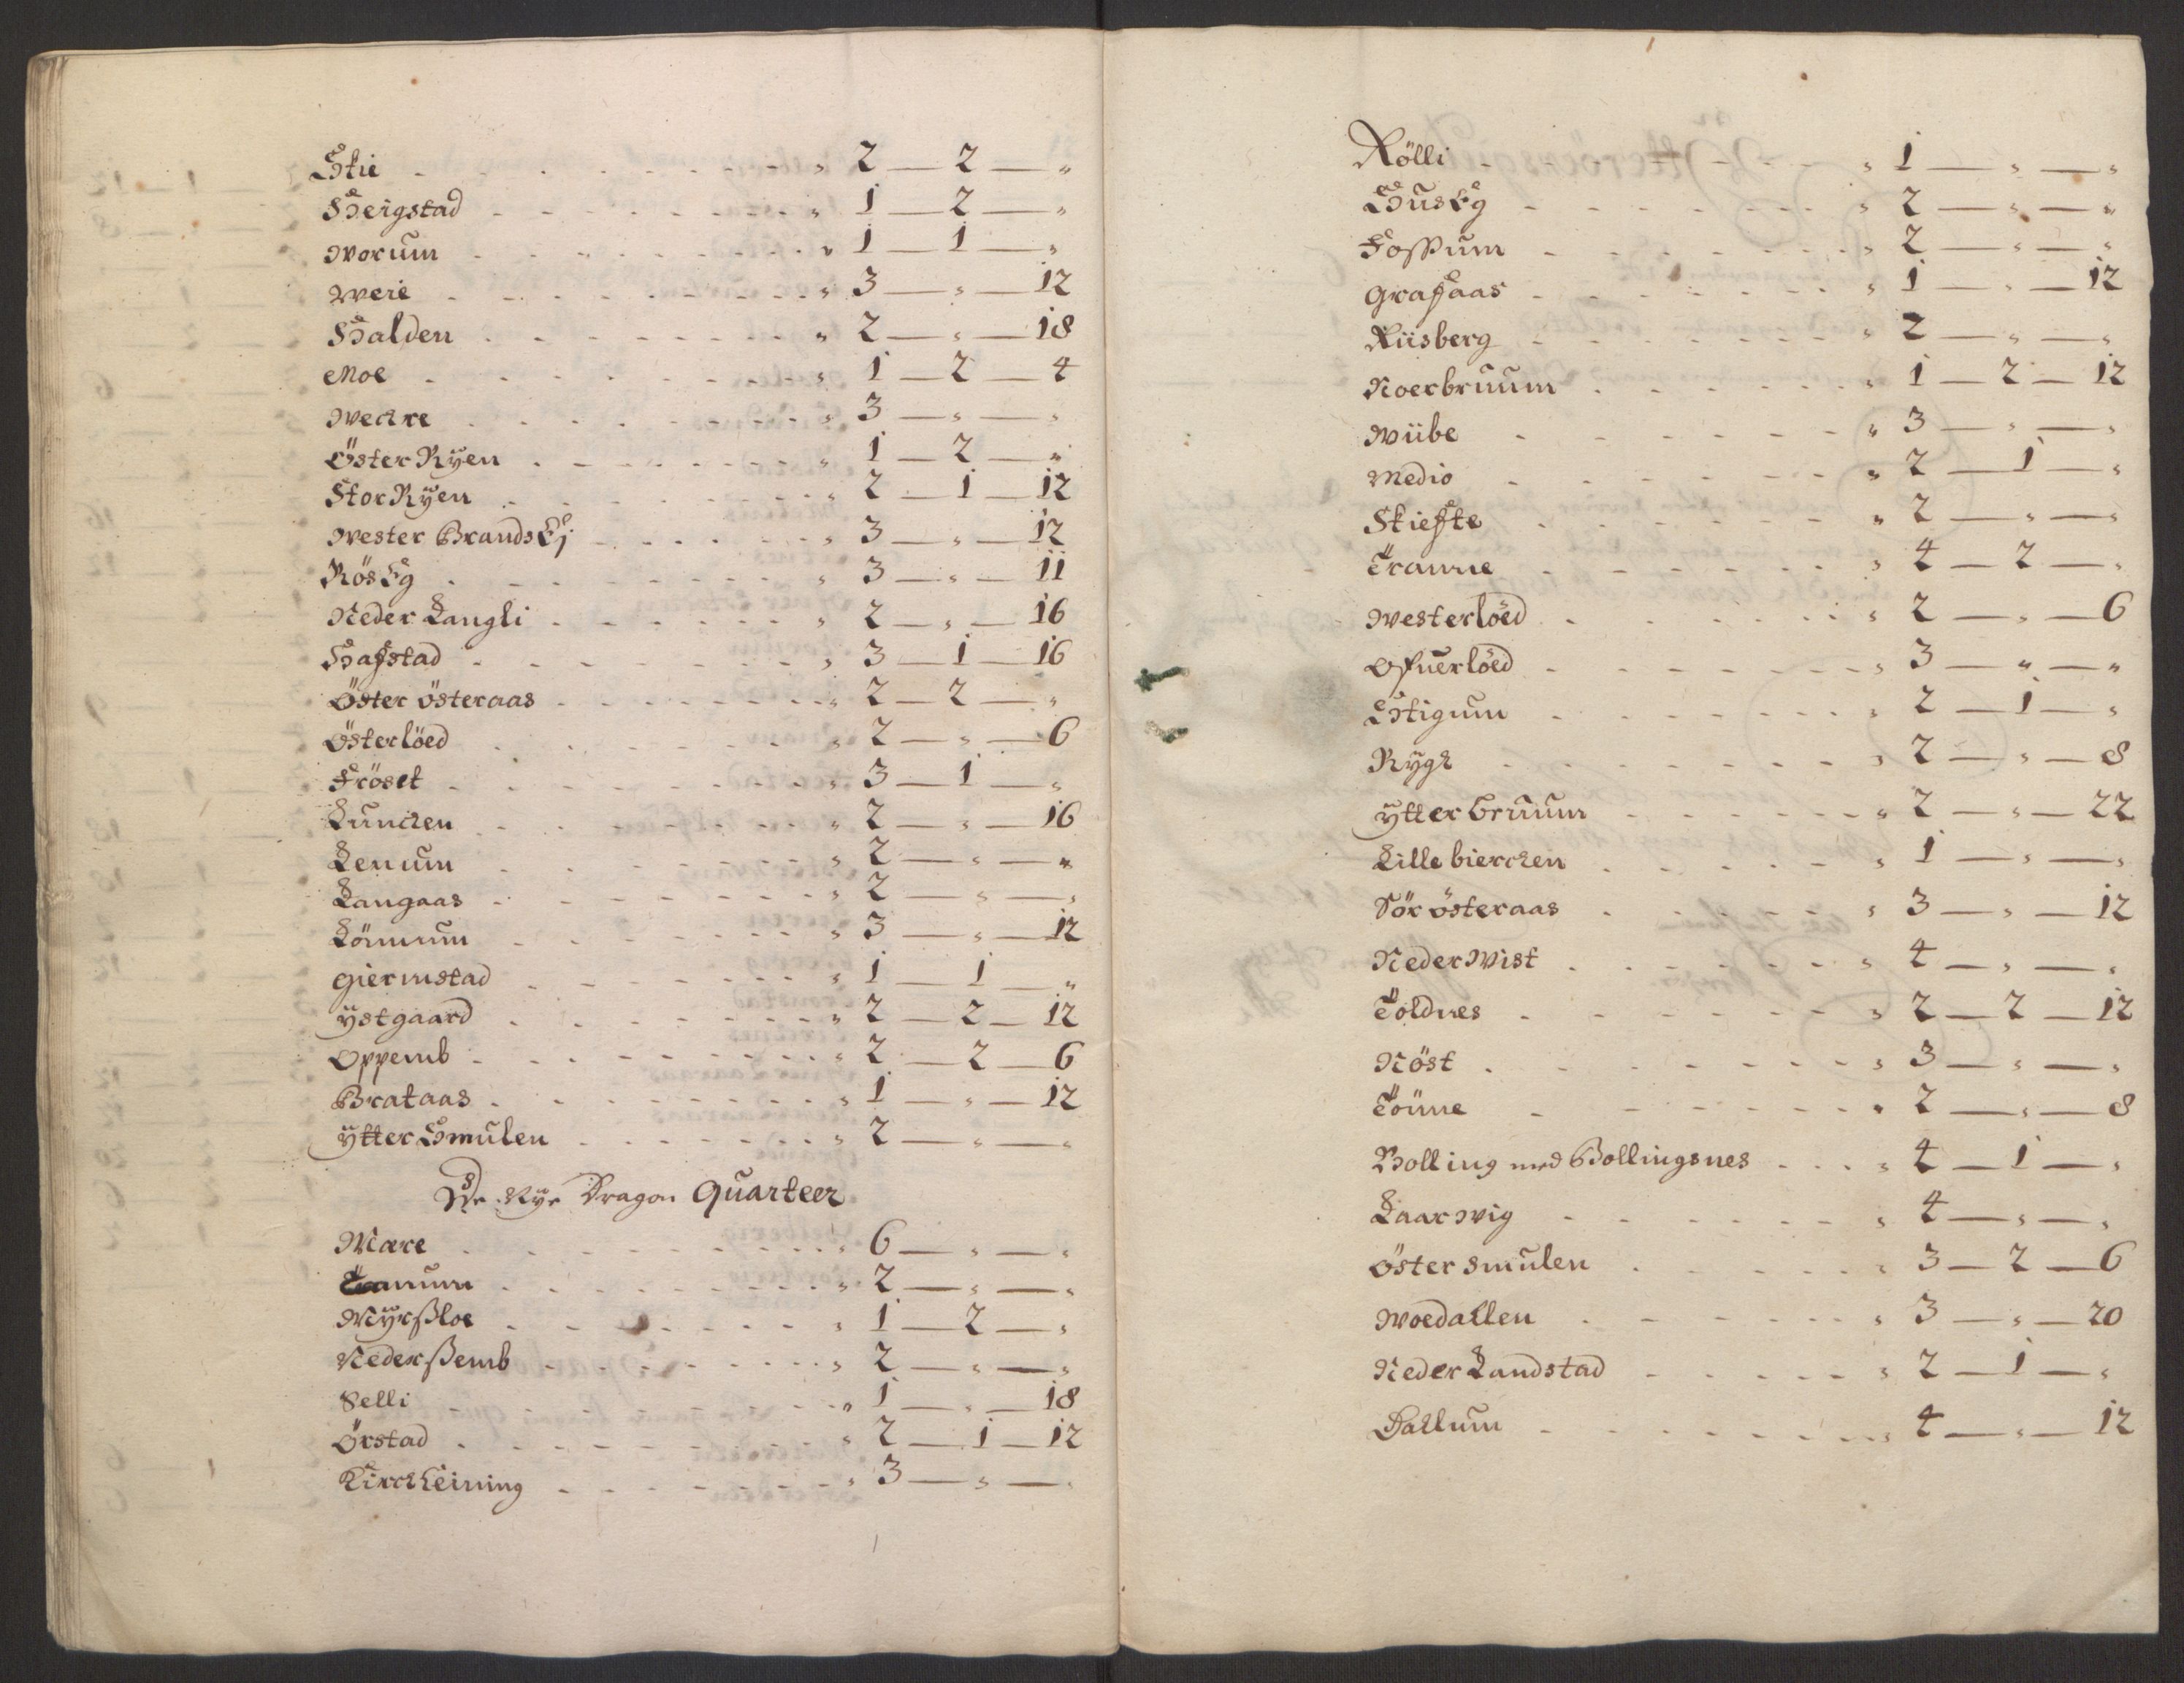 Stie - - - - - - - - - „ 2 — 2 — „
Heigstad - - - - - - - - „ 1 — 2 — „
Worum - - - - - - - - „ 1 — 1 — „
Weie - - - - - - - - „ 3 — „ — 12
Halden - - - - - - - - „ 2 — „ — 18
Moe - - - - - - - - „ 1 — 2 — 4
Weckre - - - - - - - - „ 3 — „ — „
Öster Rÿen - - - - - - - „ 1 — 2 — „
Stor Rÿen - - - - - - - „ 2 — 1 — 12
Wester Brands - - - - - - „ 3 — „ — 12
Rösög - - - - - - - - „ 3 — „ — 11
Neder Langli - - - - - - „ 2 — „ — 16
Hafstad - - - - - - - - „ 3 — 1 — 16
Öster österaas - - - - - - - „ 2 — 2 — „
Österlöed - - - - - - - „ 2 — „ — 6
Fröset - - - - - - - - „ 3 — 1 — „
Lunden - - - - - - - - „ 2 — „ — 16
Lenum - - - - - - - - „ 2 — „ — „
Langaas - - - - - - - - „ 2 — „ — „
Lönnum - - - - - - - - „ 3 — „ — 12
Giermstad - - - - - - - „ 1 — 1 — „
ÿstgaard - - - - - - - „ 2 — 2 — 12
Oppemb - - - - - - - - „ 2 — 2 — 6
Brataas - - - - - - - - „ 1 — „ — 12
ÿtter Smulen - - - - - - „ 2 — „ — „
De Nye Dragon Quarteer
Mære - - - - - - - - - „ 6 — „ — „
Tanum - - - - - - - - „ 2 — „ — „
Mÿrßloe - - - - - - - - „ 1 — 2 — „
Nederßemb - - - - - - - „ 2 — „ — „
Selli - - - - - - - - „ 1 — „ — 18
Örstad - - - - - - - - „ 2 — 1 — 12
Kirckheining - - - - - - - „ 3 — „ — „
Rölli - - - - - - - - „ 1 — „ — „
Husby - - - - - - - - „ 2 — „ — „
Foßum - - - - - - - - „ 2 — „ — „
Grafaas - - - - - - - „ 1 — „ — 12
Riisberg - - - - - - - „ 2 — „ — „
Noerbruum - - - - - - „ 1 — 2 — 12
Wiibe - - - - - - - „ 3 — „ — „
Medio - - - - - - - „ 2 — 1 — „
Skiefte - - - - - - - „ 2 — „ — „
Tranne - - - - - - - „ 4 — 2 — „
Westerlöed - - - - - - „ 2 — „ — 6
Ofuerlöed - - - - - - - „ 3 — „ — „
Stigum - - - - - - - „ 2 — 1 — „
Rÿgh - - - - - - - - „ 2 — „ — 8
ÿtter bruum - - - - - - „ 2 — „ — 22
Lille biercken - - - - - „ 1 — „ — „
Sör österaas - - - - - - „ 3 — „ — 12
Neder Wist - - - - - - „ 4 — „ — „
Toldnes - - - - - - - „ 2 — 2 — 12
Nöst - - - - - - - - „ 3 — „ — „
Tönne - - - - - - - „ 2 — „ — 8
Bolling med Bollingsnes - - - „ 4 — 1 — „
Kaarwig - - - - - - - „ 4 — „ — „
Öster Smulen - - - - - - „ 3 — 2 — 6
Woedallen - - - - - - „ 3 — „ — 20
Neder Landstad - - - - - „ 2 — 1 — „
Dallum - - - - - - - „ 4 — „ — 12